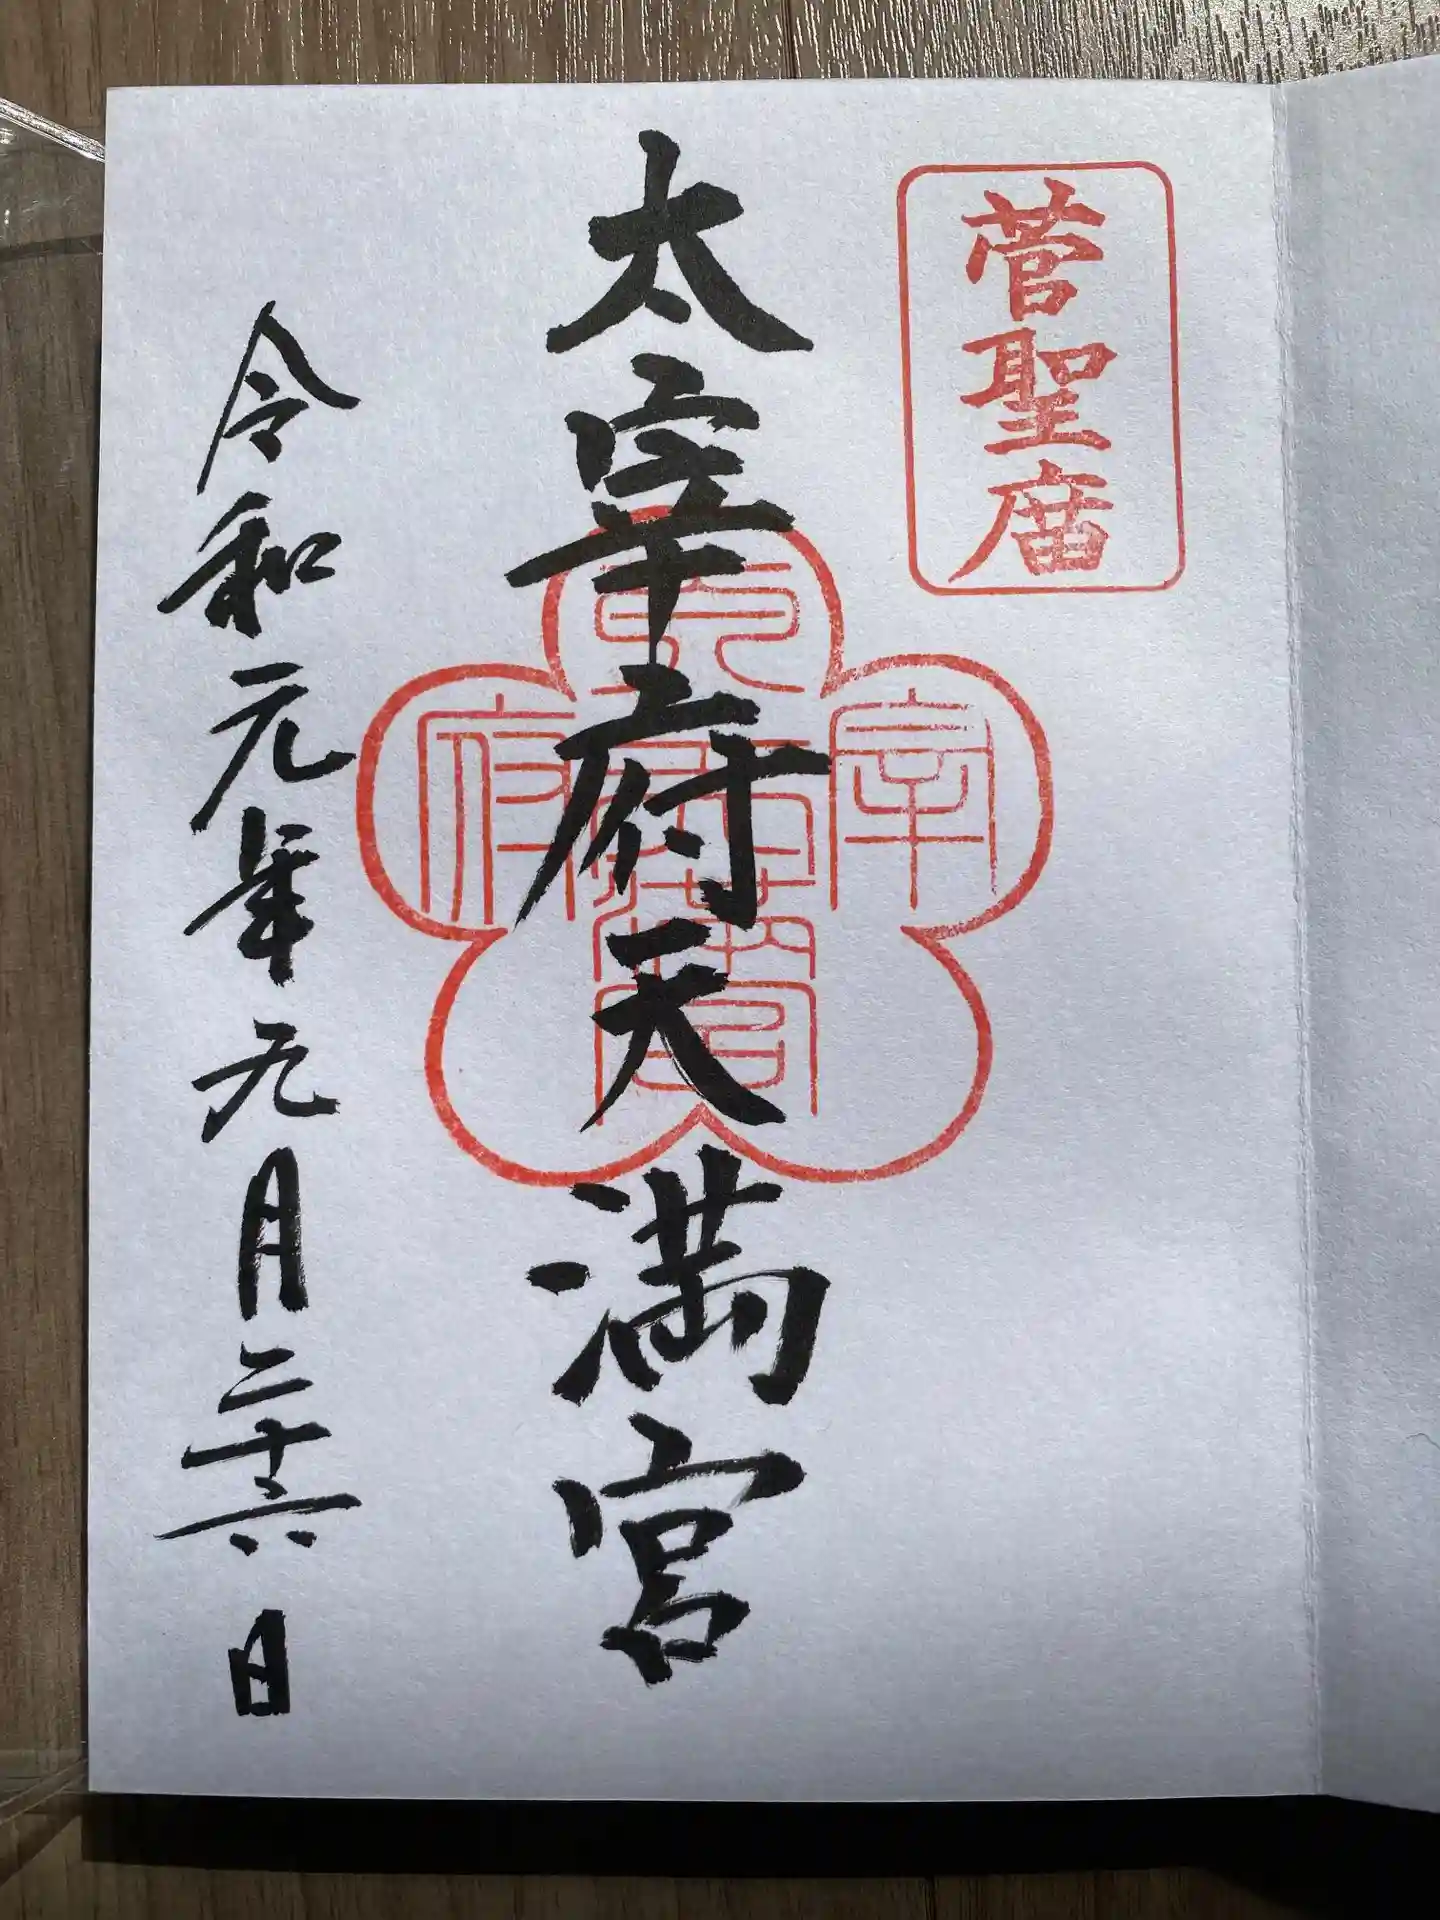 菅聖庿
太宰府天満宮
宰
府
令和元年九月二十六日